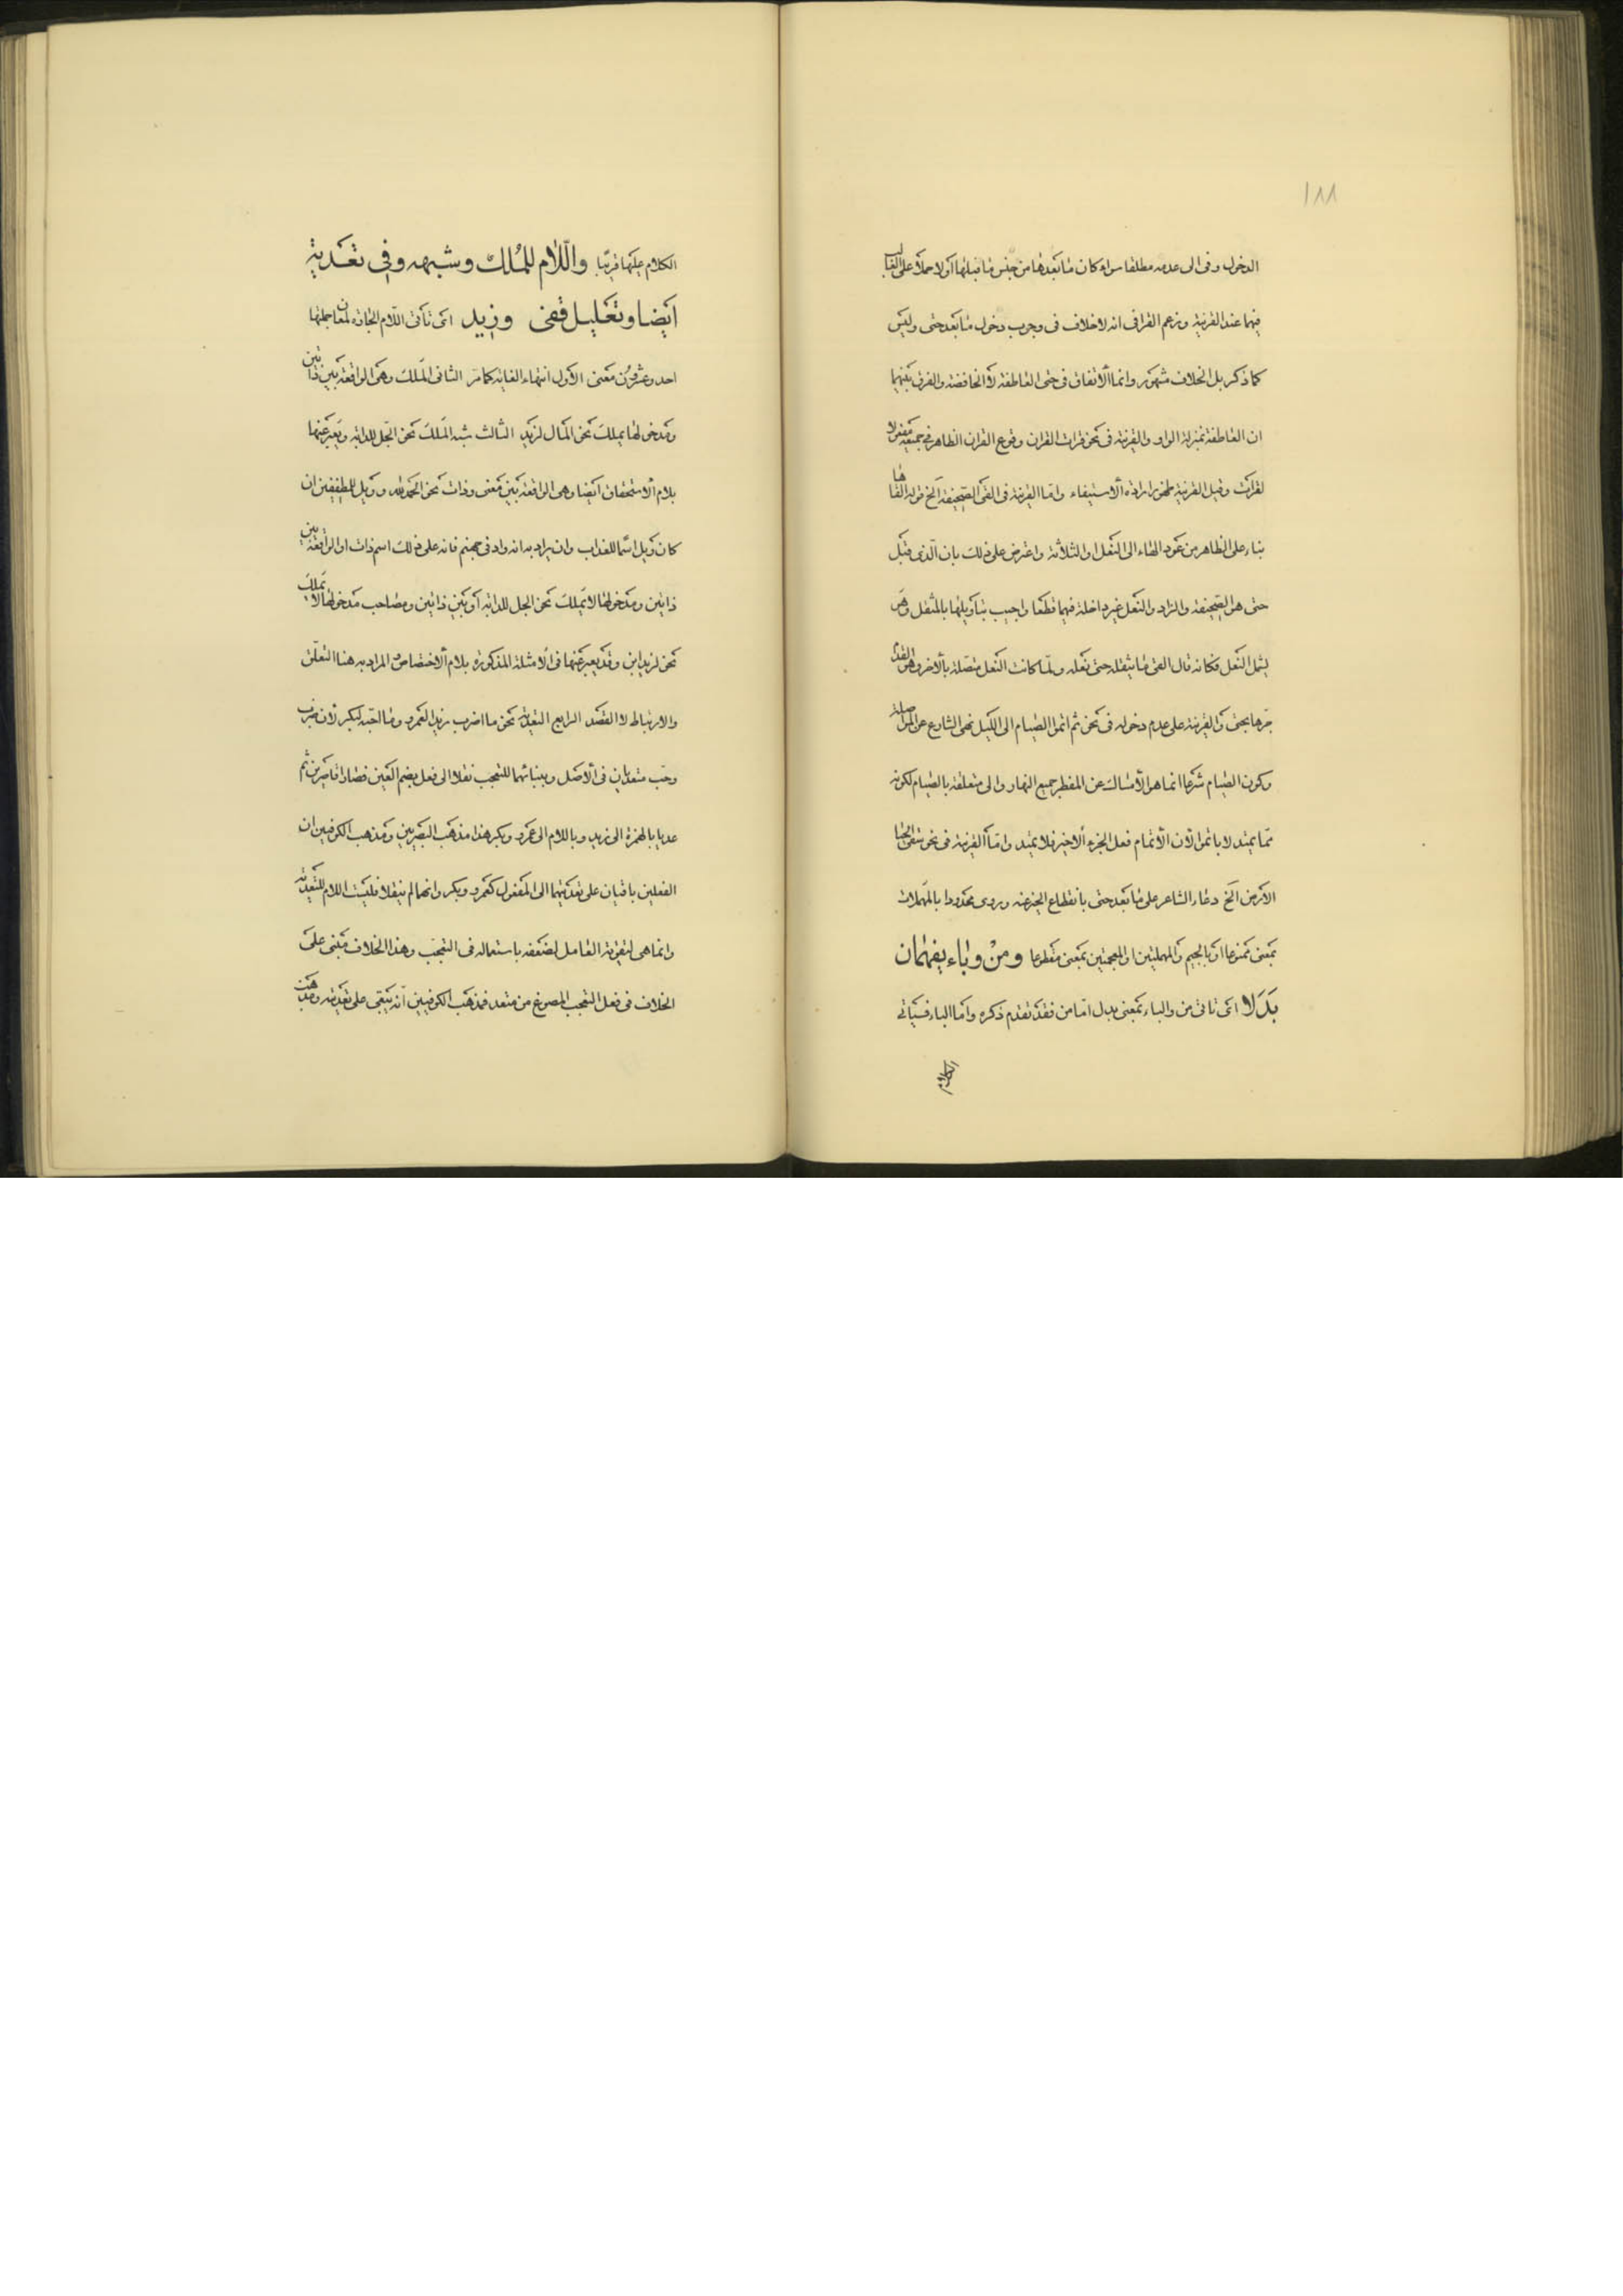 ١٨٨
الدخول وفى الى عدمه مطلقا سواء كان ما بعدها من جنس ما قبلها أو لا حملا على الغالب
فيهما عند القرينة وزعم القرافى انه لاخلاف فى وجوب دخول ما بعد حتى وليس
كما ذكر بل الخلاف مشهور وانما الاتفاق فى حتى العاطفة لا الخافضة والفرق بينهما
ان العاطفة بمنزلة الواو والقرينة فى نحو قرات القران وقوع القران الظاهر فى جميعه مفعولا
لقرات وقيل القرينة ظهور ارادة الاستيفاء واما القرينة فى القى الصحيفة الخ قوله القاها
بناء على الظاهر من عود الهاء الى النعل او الثلاثة واعترض على ذلك بان الذى قبل
حتى هو الصحيفة والزاد والنعل غير داخلة فيهما قطعا واجيب بتأويلها بالمثقل وهو
يشمل النعل فكانه قال القى ما يثقله حتى نعله ولما كانت النعل متصلة بالاخر وهو القدم
جرها بحتى والقرينة على عدم دخوله فى نحو ثم اتموا الصيام الى الليل نهى الشارع عن المواصلة
وكون الصيام شرعا انما هو الامساك عن المفطر جميع النهار والى متعلقة بالصيام لكونه
مما يمتد لا باتموا لان الاتمام فعل الجزء الاخير فلا يمتد واما القرينة فى نحو سقى الحيا
الارض الخ دعاء الشاعر على ما بعد حتى بانقطاع الخير عنه وروى محدودا بالمهملات
بمعنى ممنوعا او بالجيم والمهملتين او المعجمتين بمعنى مقطوعا ومن وباء يفهمان
بدلا اى تاتى من والباء بمعنى بدل اما من فقد تقدم ذكره واما الباء فسياتى
الكلام
الكلام عليها قريبا واللام للملك وشبهه وفى تعدية
ايضا وتعليل قفى وزيد اى تأتى اللام الجارة لمعان جملتها
احد وعشرون معنى الاول انتهاء الغاية كما مر الثانى الملك وهى الواقعة بين ذاتين
ومدخولها يملك نحو المال لزيد الثالث شبه الملك نحو الجل للدابة ويعبر عنها
بلام الاستحقاق ايضا وهى الواقعة بين معنى وذات نحو الحمد لله وويل للمطففين ان
كان ويل اسما للعذاب وان يراد به انه واد فى جهنم فانه على ذلك اسم ذات او الواقعة بين
ذاتين ومدخولها لا يملك نحو الجل للدابة أو بين ذاتين ومصاحب مدخولها لا يملك
نحو لزيد ابن وقد يعبر عنها فى الامثلة المذكورة بلام الاختصاص والمراد به هنا التعلق
والارتباط لا القصد الرابع التعدية نحو ما اضرب زيدا لعمرو وما احبه لبكر لان ضرب
وحب متعديان فى الاصل وببنائهما للتعجب نقلا الى فعل بضم العين فصارا قاصرين ثم
عديا بالهمزة الى زيد وباللام الى عمرو وبكر هذا مذهب البصريين ومذهب الكوفيين ان
الفعلين باقيان على تعديتهما الى المفعول كعمرو وبكر وانهما لم ينقلا فليست اللام للتعدية
وانما هى لتقوية العامل لضعفه باستعماله فى التعجب وهذا الخلاف مبنى على
الخلاف فى فعل التعجب المصوغ من متعد فمذهب الكوفيين انه يبقى على تعديته ومذهب